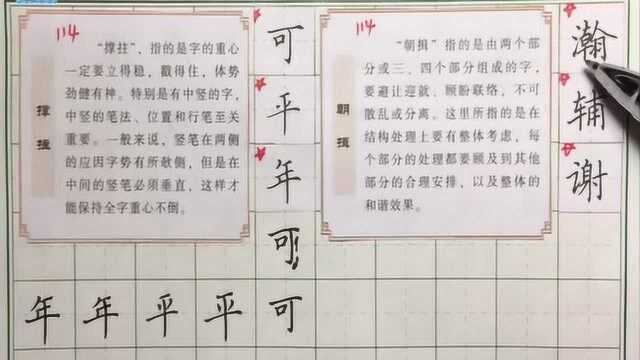 114
撑拄
“撑拄”，指的是字的重心
一定要立得稳，戳得住，体势
劲健有神。特别是有中竖的字，
中竖的笔法、位置和行笔至关
重要。一般来说，竖笔在两侧
的应因字势有所敧侧，但是在
中间的竖笔必须垂直，这样才
能保持全字重心不倒。
可
平
年
可
年 年 平 平 可
114
朝揖
“朝揖”指的是由两个部
分或三、四个部分组成的字，
要避让迎就、顾盼联络，不可
散乱或分离。这里所指的是在
结构处理上要有整体考虑，每
个部分的处理都要顾及到其他
部分的合理安排，以及整体的
和谐效果。
瀚
辅
谢